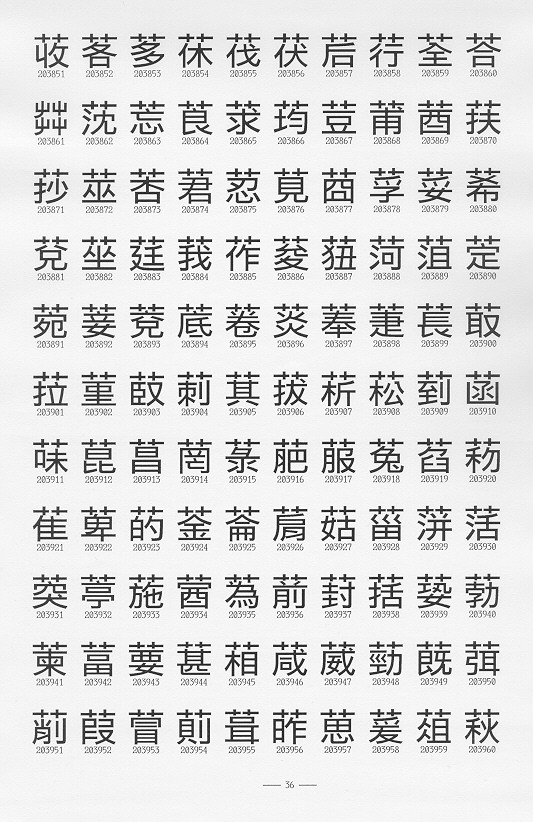 荍 茖 茤 茠 茷 茯 茩 荇 荃 荅
203851 203852 203853 203854 203855 203856 203857 203858 203859 203860
莐 莣 莨 莍 荺 荳 莆 莤 荴
203861 203862 203863 203864 203865 203866 203867 203868 203869 203870
莏 莁 莕 莙 荵 莧 莔 莩 荽 莃
203871 203872 203873 203874 203875 203876 203877 203878 203879 203880
莌 莝 莛 莪 莋 莥 菏 菹
203881 203882 203883 203884 203885 203886 203887 203888 203889 203890
菀 菨 菧 菤 菼 菶 萐 萇 菆
203891 203892 203893 203894 203895 203896 203897 203898 203899 203900
菈 菫 菣 莿 萁 菝 菥 菘 菿 菡
203901 203902 203903 203904 203905 203906 203907 203908 203909 203910
菋 菎 菖 菉 萉 菔 菟 萏
203911 203912 203913 203914 203915 203916 203917 203918 203919 203920
萑 萆 菂 菳 菕 菇 菑 萿
203921 203922 203923 203924 203925 203926 203927 203928 203929 203930
葖 葶 葹 蒍 葥 葑 葀 葧
203931 203932 203933 203934 203935 203936 203937 203938 203939 203940
萰 葍 葽 葚 葙 葴 葳 葝 蔇
203941 203942 203943 203944 203945 203946 203947 203948 203949 203950
萷 葭 萺 萴 葺 葃 葸 萲 葅 萩
203951 203952 203953 203954 203955 203956 203957 203958 203959 203960
— 36 —